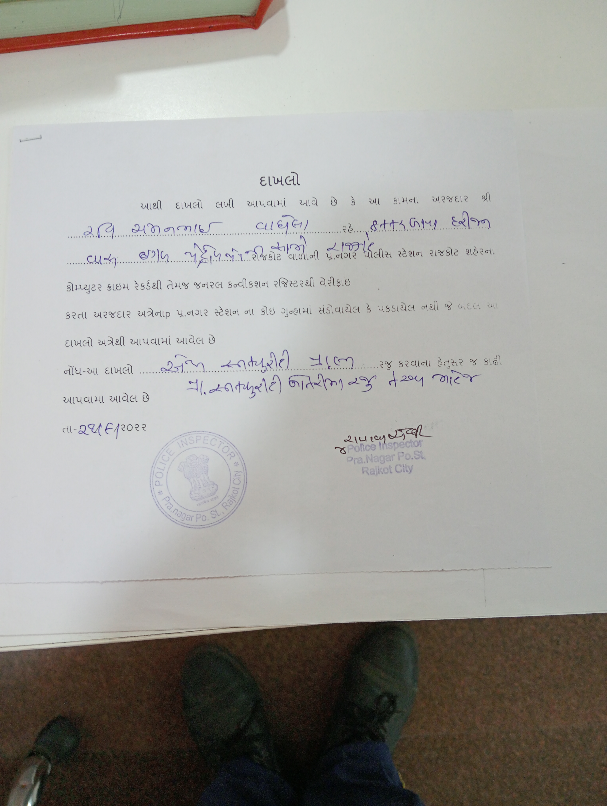 દાખલો
આથી દાખલો લખી આપવામાં આવે છે કે આ કામના અરજદાર શ્રી
રવિ વાઘેલા રહે હરીજન
વાસ સામે રાજકોટ વાળાની પ્ર.નગર પોલીસ સ્ટેશન રાજકોટ શહેરના
કોમ્પ્યુટર ક્રાઇમ રેકર્ડથી તેમજ જનરલ કન્વીકશન રજિસ્ટરથી વેરીફાઇ
કરતા અરજદાર અત્રેના પ્ર.નગર સ્ટેશન ના કોઇ ગુન્હામાં સંડોવાયેલ કે પકડાયેલ નથી જે બદલ આ
દાખલો અત્રેથી આપવામાં આવેલ છે
નોંધ-આ દાખલો સિક્યુરીટી રજુ કરવાના હેતુસર જ કાઢી
પ્રા. સિક્યુરીટી રજુ માટેજ
આપવામા આવેલ છે
તા- /૨૦૨૨
Police Inspector
Pra.Nagar Po.St.
Rajkot City
POLICE INSPECTOR
Pra.nagar Po. St. Rajkot City